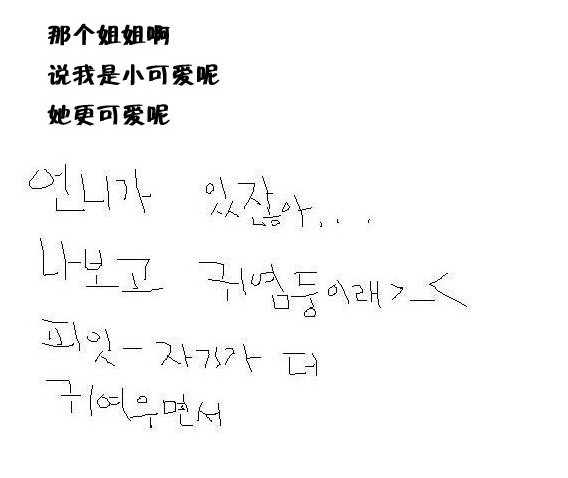 那个姐姐啊
说我是小可爱呢
她更可爱呢
언니가 있잖아...
나보고 귀염둥이래>_<
피잇- 자기가 더
귀여우면서